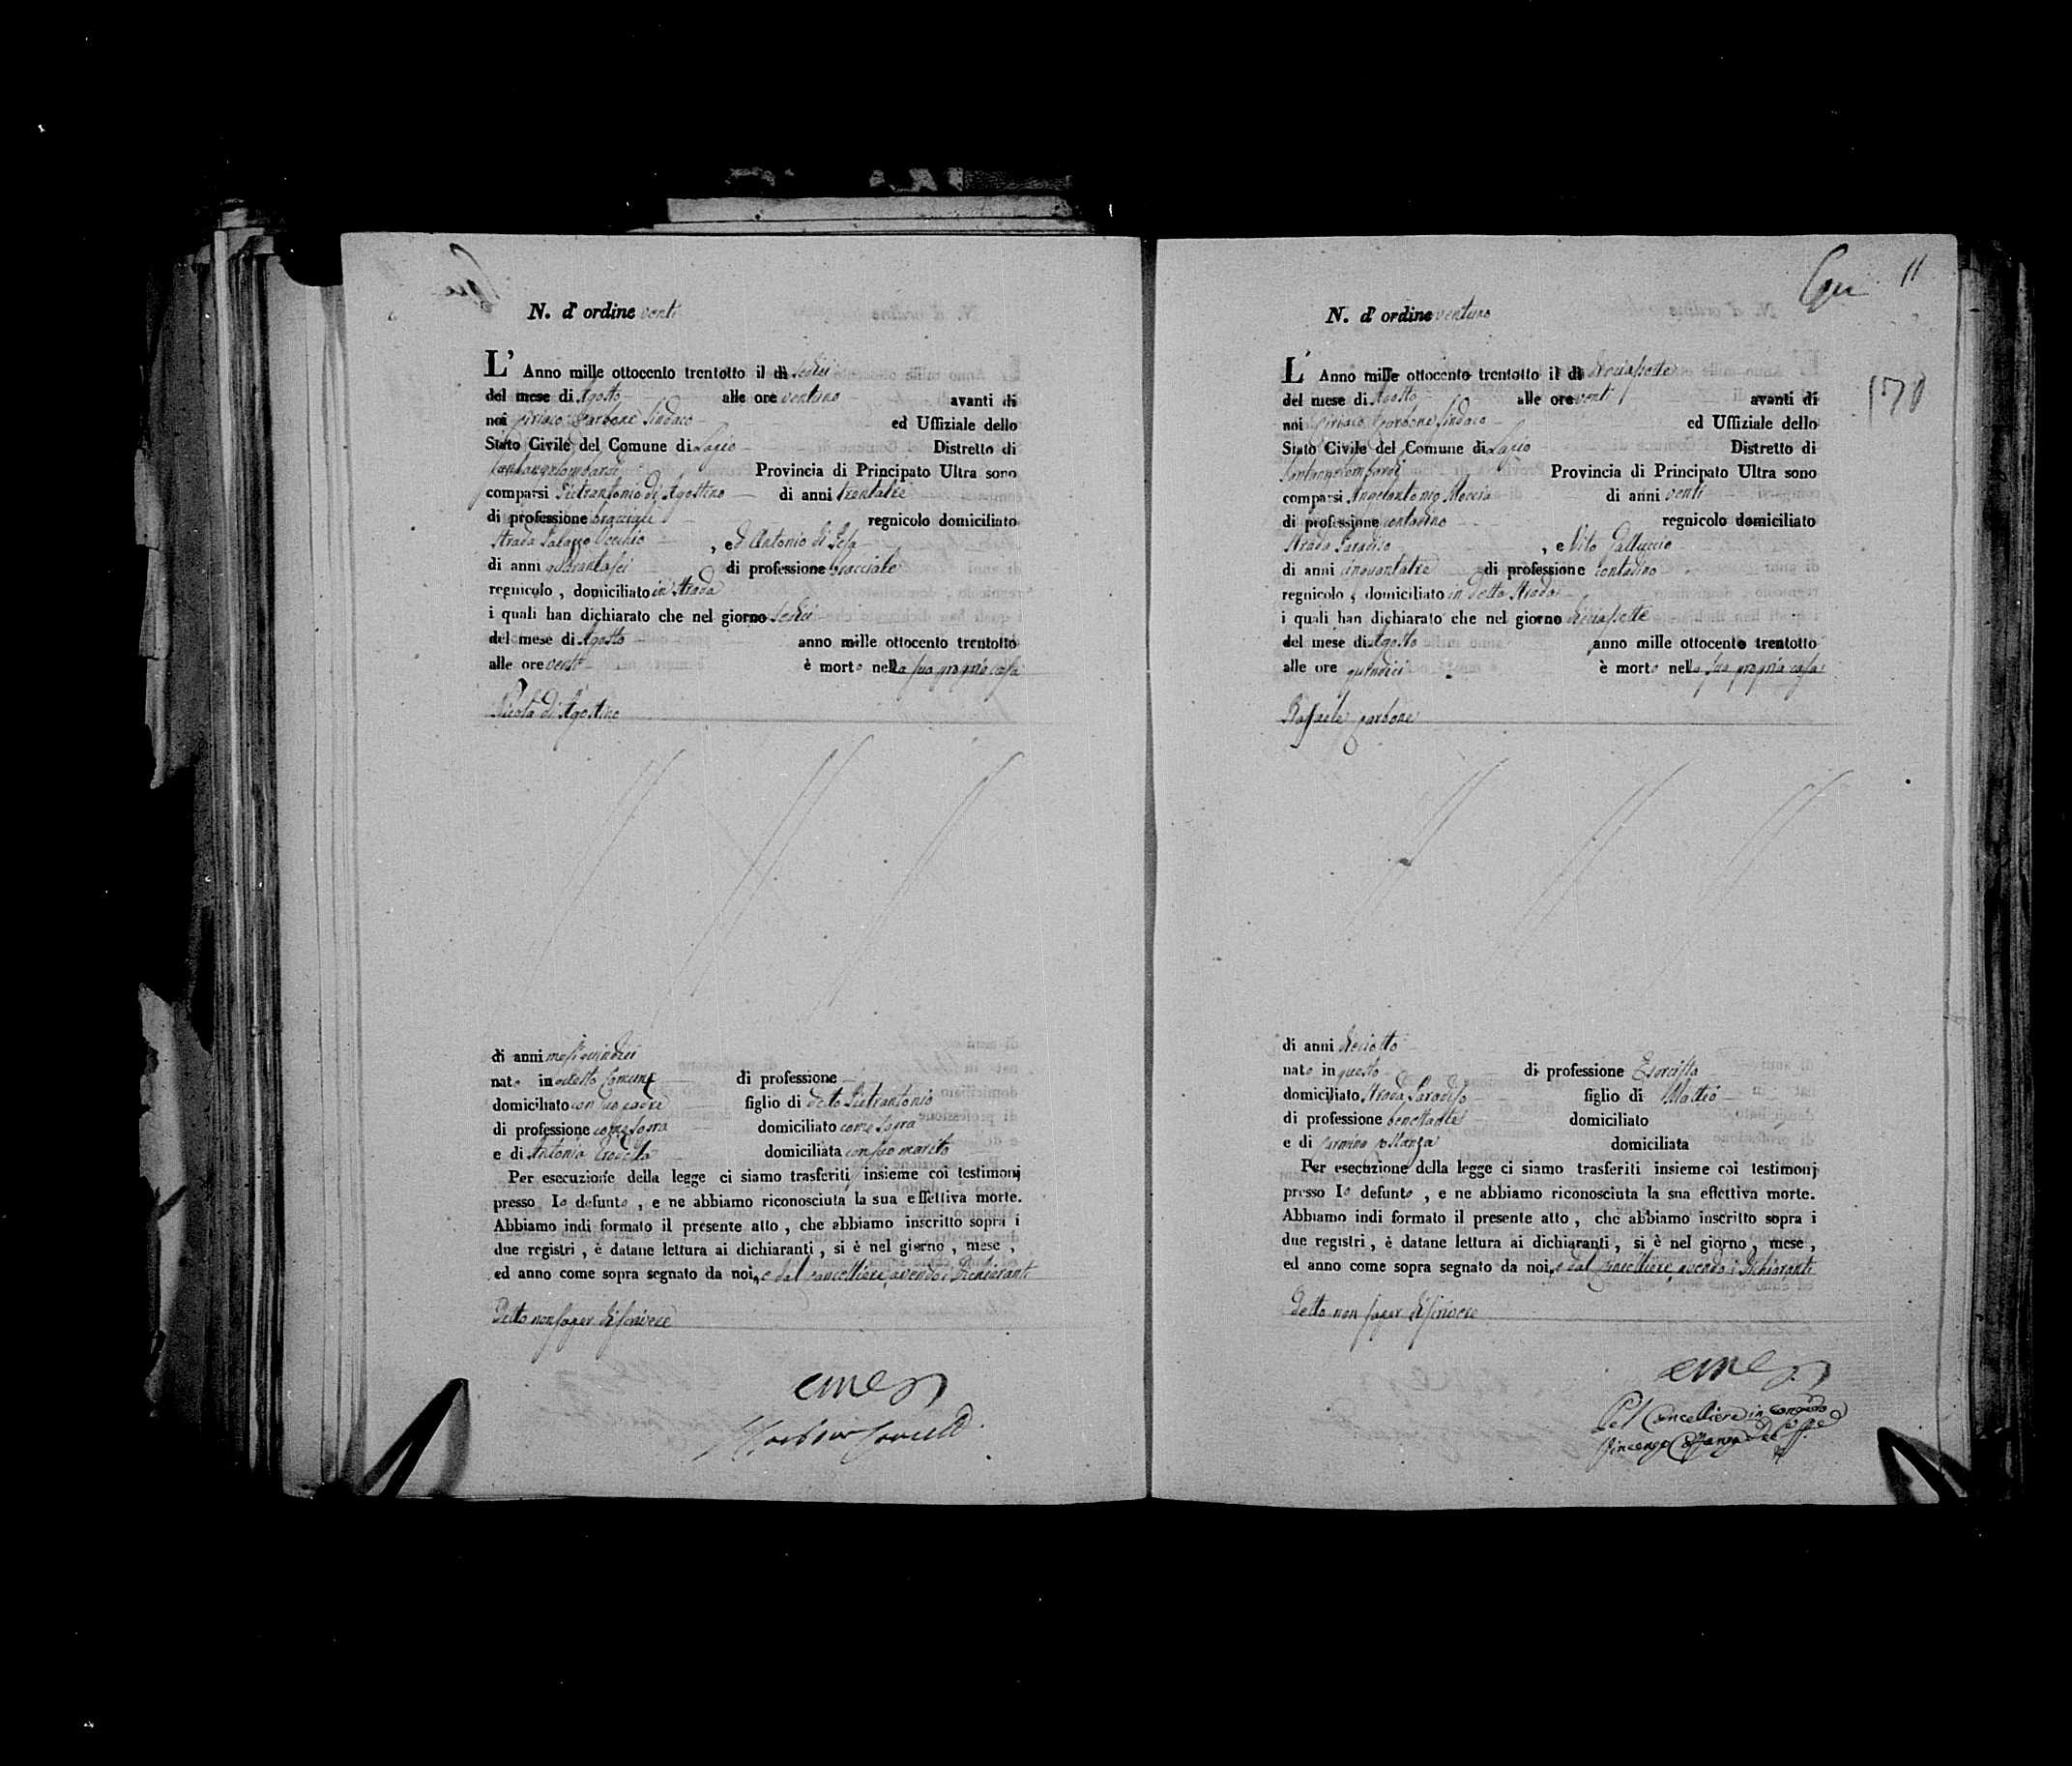 N. d' ordine venti
L' Anno mille ottocento trentotto il dì sedici
del mese di Agosto alle ore ventuno avanti di
noi Ciriaco Carbone Sindaco ed Uffiziale dello
Stato Civile del Comune di Lapio Distretto di
Santangelombardi Provincia di Principato Ultra sono
comparsi Pietrantonio di Agostino di anni trentatre
di professione bracciale regnicolo domiciliato
Strada Palazzo Vecchio , ed Antonio di
di anni quarantasei di professione bracciale
regnicolo , domiciliato in Strada
i quali han dichiarato che nel giorno sedici
del mese di Agosto anno mille ottocento trentotto
alle ore venti è morto nella sua propria casa
Nicola di Agostino
di anni mesi quindici
nato in detto Comune di professione
domiciliato con suo padre figlio di detto Pietrantonio
di professione come sopra domiciliato come sopra
e di Antonia domiciliata con suo marito
Per esecuzione della legge ci siamo trasferiti insieme coi testimonj
presso lo defunto , e ne abbiamo riconosciuta la sua effettiva morte.
Abbiamo indi formato il presente atto , che abbiamo inscritto sopra i
due registri , è datane lettura ai dichiaranti , si è nel giorno , mese ,
ed anno come sopra segnato da noi, e dal cancelliere avendo i Dichiaranti
Detto non saper di scrivere
11
N. d' ordine ventuno
170
L' Anno mille ottocento trentotto il dì diciassette
del mese di Agosto alle ore venti avanti di
noi Ciriaco Carbone Sindaco ed Uffiziale dello
Stato Civile del Comune di Lapio Distretto di
Santangelombardi Provincia di Principato Ultra sono
comparsi Angelantonio Moccia di anni venti
di professione contadino regnicolo domiciliato
Strada Paradiso , e Vito Galluccio
di anni cinquantatre di professione contadino
regnicolo , domiciliato in detta Strada
i quali han dichiarato che nel giorno diciassette
del mese di Agosto anno mille ottocento trentotto
alle ore quindici è morto nella sua propria casa
Raffaele Carbone
di anni diciotto
nato in questo di professione
domiciliato Strada Paradiso figlio di Matteo
di professione benestante domiciliato
e di Carmina Costanza domiciliata
Per esecuzione della legge ci siamo trasferiti insieme coi testimonj
presso lo defunto , e ne abbiamo riconosciuta la sua effettiva morte.
Abbiamo indi formato il presente atto , che abbiamo inscritto sopra i
due registri , è datane lettura ai dichiaranti , si è nel giorno , mese ,
ed anno come sopra segnato da noi, e dal Cancelliere, avendo i Dichiaranti
Detto non saper di scrivere
Pel Cancelliere in congedo
Vincenzo Costanza